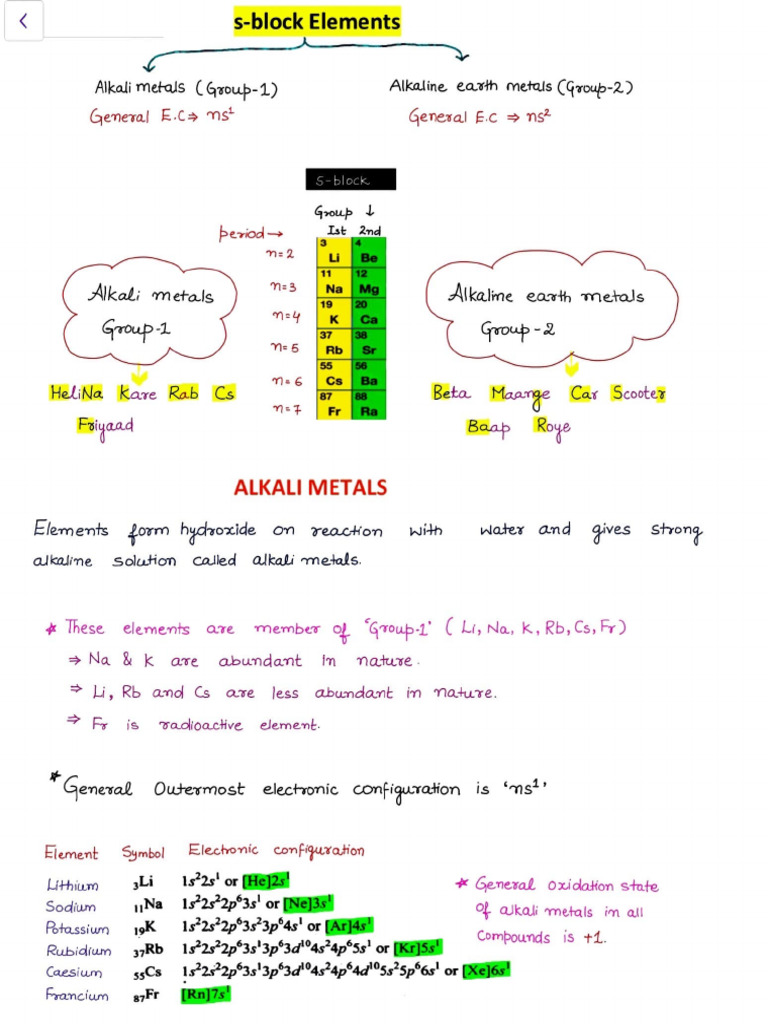 s-block Elements
Alkali metals (Group-1)
Alkaline earth metals (Group-2)
General E.C ⇒ ns¹
General E.C ⇒ ns²
S-block
Group ↓
period →
Ist 2nd
n=2
3 4
Li Be
n=3
11 12
Na Mg
n=4
19 20
K Ca
n=5
37 38
Rb Sr
n=6
55 56
Cs Ba
n=7
87 88
Fr Ra
Alkali metals
Group-1
Alkaline earth metals
Group-2
HeliNa Kare Rab Cs
Friyaad
Beta Maange Car Scooter
Baap Roye
ALKALI METALS
Elements form hydroxide on reaction with water and gives strong
alkaline solution called alkali metals.
* These elements are member of 'Group-1' (Li, Na, K, Rb, Cs, Fr)
⇒ Na & K are abundant in nature.
⇒ Li, Rb and Cs are less abundant in nature.
⇒ Fr is radioactive element.
* General Outermost electronic configuration is 'ns¹'
Element Symbol Electronic configuration
Lithium ₃Li 1s²2s¹ or [He]2s¹
Sodium ₁₁Na 1s²2s²2p⁶3s¹ or [Ne]3s¹
Potassium ₁₉K 1s²2s²2p⁶3s²3p⁶4s¹ or [Ar]4s¹
Rubidium ₃₇Rb 1s²2s²2p⁶3s¹3p⁶3d¹⁰4s²4p⁶5s¹ or [Kr]5s¹
Caesium ₅₅Cs 1s²2s²2p⁶3s¹3p⁶3d¹⁰4s²4p⁶4d¹⁰5s²5p⁶6s¹ or [Xe]6s¹
Francium ₈₇Fr [Rn]7s¹
* General oxidation state
of alkali metals in all
Compounds is +1.